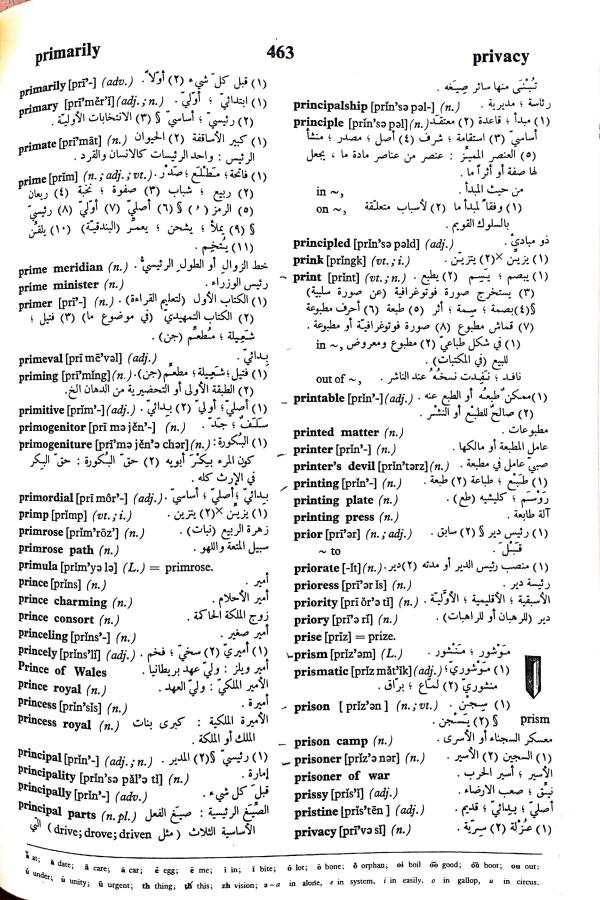 primarily 463 privacy
primarily [prī'-] (adv.) (١) قبل كلّ شيء (٢) أوّلاً .
primary [prī'mĕr'ĭ] (adj.; n.) (١) ابتدائيّ ؛ أوّليّ .
(٢) رئيسيّ ؛ أساسيّ § (٣) الانتخابات الأوليّة .
primate [prī'māt] (n.) (١) كبير الأساقفة (٢) الحيوان
الرئيس : واحد الرئيسات كالانسان والقرد .
prime [prīm] (n.; adj.; vt.) (١) فاتحة ؛ مَطْلَع ؛ صدْر .
(٢) ربيع ؛ شباب (٣) صفوة ؛ نخبة (٤) ريعان
(٥) الرمز ( ′ ) § (٦) أصليّ (٧) أوّليّ (٨) رئيسيّ
§ (٩) يملأ ؛ يشحن ؛ يعمّر (البندقيّة) (١٠) يلقّن
(١١) يُتخِم .
prime meridian (n.) خط الزوال أو الطول الرئيسيّ .
prime minister (n.) رئيس الوزراء .
primer [prī'-] (n.) (١) الكتاب الأول (لتعليم القراءة) .
(٢) الكتاب التمهيديّ (في موضوع ما) (٣) فتيل ؛
شعيلة ؛ مُطعِّم (جن) .
primeval [prī mē'vəl] (adj.) بِدائيّ .
priming [prī'mĭng] (n.) (١) فتيل ؛ شعيلة ؛ مطعِّم (جن) .
(٢) الطبقة الأولى أو التحضيرية من الدهان الخ .
primitive [prĭm'-] (adj.) (١) أصليّ ؛ أوليّ (٢) بِدائيّ .
primogenitor [prī mə jĕn'-] (n.) سلَف ؛ جدّ .
primogeniture [prī'mə jĕn'ə chər] (n.) (١) البُكورة :
كون المرء بِكْرَ أبويه (٢) حق البُكورة : حق البكر
في الإرث كله .
primordial [prī môr'-] (adj.) بِدائيّ ؛ أصليّ ؛ أساسيّ .
primp [prĭmp] (vt.; i.) (١) يزيّن ×(٢) يتزين .
primrose [prĭm'rōz'] (n.) زهرة الربيع (نبات) .
primrose path (n.) سبيل المتعة واللهو .
primula [prĭm'yə lə] (L.) = primrose.
prince [prĭns] (n.) أمير .
prince charming (n.) أمير الأحلام .
prince consort (n.) زوج الملكة الحاكمة .
princeling [prĭns'-] (n.) أمير صغير .
princely [prĭns'lĭ] (adj.) (١) أميريّ (٢) سخيّ ؛ فخم .
Prince of Wales أمير ويلز : وليّ عهد بريطانيا .
prince royal (n.) الأمير الملكيّ : وليّ العهد .
princess [prĭn'sĭs] (n.) أميرة .
princess royal (n.) الأميرة الملكية : كبرى بنات
الملك أو الملكة .
principal [prĭn'-] (adj.; n.) (١) رئيسيّ §(٢) المدير .
principality [prĭn'sə păl'ə tĭ] (n.) إمارة .
principally [prĭn'-] (adv.) قبل كل شيء .
principal parts (n.pl.) الصيَغ الرئيسية : صيَغ الفعل
الأساسية الثلاث (مثل drive; drove; driven) التي
تُبْنَى منها سائر صِيَغه .
principalship [prĭn'sə pəl-] (n.) رئاسة ؛ مديرية .
principle [prĭn'sə pəl] (n.) (١) مبدأ ؛ قاعدة (٢) معتقَد
أساسيّ (٣) استقامة ؛ شرف (٤) أصل ؛ مصدر ؛ منشأ
(٥) العنصر المميِّز : عنصر من عناصر مادة ما ، يجعل
لها صفة أو أثراً ما .
in ~, من حيث المبدأ .
on ~, (١) وفقاً لمبدأ ما (٢) لأسباب متعلّقة
بالسلوك القويم .
principled [prĭn'sə pəld] (adj.) ذو مبادئ .
prink [prĭngk] (vt.; i.) (١) يزيّن ×(٢) يتزيّن .
print [prĭnt] (vt.; n.) (١) يبصم ؛ يَسِم (٢) يطبع .
(٣) يستخرج صورة فوتوغرافية (عن صورة سلبية)
§(٤) بصمة ؛ سِمة ؛ أثر (٥) طبعة (٦) أحرف مطبوعة
(٧) قماش مطبوع (٨) صورة فوتوغرافية أو مطبوعة .
in ~, (١) في شكل طباعيّ (٢) مطبوع ومعروض
للبيع (في المكتبات) .
out of ~, نافد ؛ نَفِدت نسخُه عند الناشر .
printable [prĭn'-] (adj.) (١) ممكن طبعُه أو الطبع عنه .
(٢) صالحٌ للطبْع أو النشْر .
printed matter (n.) مطبوعات .
printer [prĭn'-] (n.) عامل المطبعة أو مالكها .
printer's devil [prĭn'tərz] (n.) صبيّ عامل في مطبعة .
printing [prĭn'-] (n.) (١) طَبْع ؛ طباعة (٢) طبعة .
printing plate (n.) رَوْسَم ؛ كليشيه (طع) .
printing press (n.) آلة طابعة .
prior [prī'ər] (n.; adj.) (١) رئيس دير § (٢) سابق .
~ to قَبْلَ .
priorate [-ĭt] (n.) (١) منصب رئيس الدير أو مدته (٢) دير .
prioress [prī'ər ĭs] (n.) رئيسة دير .
priority [prī ôr'ə tĭ] (n.) الأسبقية ؛ الأقليمية ؛ الأوّليّة .
priory [prī'ə rĭ] (n.) دير (للرهبان أو للراهبات) .
prise [prīz] = prize.
prism [prĭz'əm] (L.) مَوْشور ؛ منشور .
prismatic [prĭz măt'ĭk] (adj.) (١) مَوْشوريّ ؛
منشوريّ (٢) لمّاع ؛ برّاق .
prison [ prĭz'ən ] (n.; vt.) (١) سِجْن .
§ (٢) يَسْجُن . prism
prison camp (n.) معسكر السجناء أو الأسرى .
prisoner [prĭz'ə nər] (n.) (١) السجين (٢) الأسير .
prisoner of war الأسير ؛ أسير الحرب .
prissy [prĭs'ĭ] (adj.) نيِّق ؛ صعب الارضاء .
pristine [prĭs'tēn ] (adj.) أصليّ ؛ بِدائيّ ؛ قديم .
privacy [prī'və sĭ] (n.) (١) عُزْلة (٢) سِرّيّة .
ă at; ā date; â care; ä car; ĕ egg; ē me; ĭ in; ī bite; ŏ lot; ō bone; ô orphan; oi boil o͝o good; o͞o boot; ou out;
ŭ under; ū unity; û urgent; th thing; th this; zh vision; ə = a in alone, e in system, i in easily, o in gallop, u in circus.